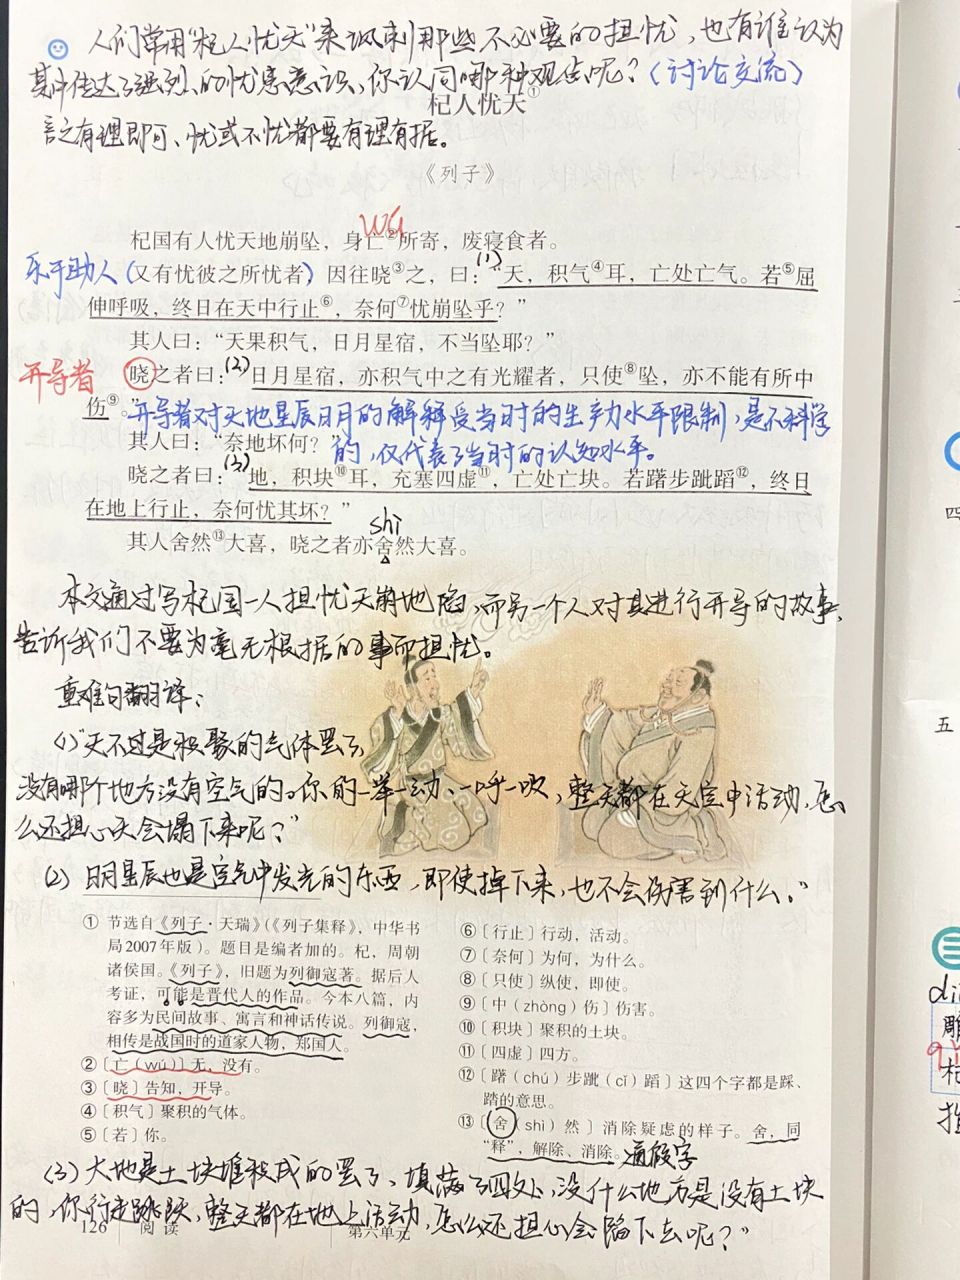 人们常用"杞人忧天"来讽刺那些不必要的担忧，也有谁认为
其中传达了强烈的忧患意识，你认同哪种观点呢？（讨论交流）
杞人忧天①
言之有理即可、忧或不忧都要有理有据。
《列子》
wú
杞国有人忧天地崩坠，身亡②所寄，废寝食者。
乐于助人（又有忧彼之所忧者）因往晓③之，曰：(1)"天，积气④耳，亡处亡气。若⑤屈
伸呼吸，终日在天中行止⑥，奈何⑦忧崩坠乎？"
其人曰："天果积气，日月星宿，不当坠耶？"
开导者 晓之者曰：(2)"日月星宿，亦积气中之有光耀者，只使⑧坠，亦不能有所中
伤⑨。"
开导者对天地星辰日月的解释受当时的生产力水平限制，是不科学
其人曰："奈地坏何？"
的，仅代表了当时的认知水平。
晓之者曰：(3)"地，积块⑩耳，充塞四虚⑪，亡处亡块。若躇步跐蹈⑫，终日
在地上行止，奈何忧其坏？"
shì
其人舍然⑬大喜，晓之者亦舍然大喜。
本文通过写杞国一人担忧天崩地陷，而另一个人对其进行开导的故事，
告诉我们不要为毫无根据的事而担忧。
重难句翻译：
(1)"天不过是积聚的气体罢了，
没有哪个地方没有空气的。你的一举一动、一呼一吸，整天都在天空中活动，怎
么还担心天会塌下来呢？"
(2) 日月星辰也是空气中发光的东西，即使掉下来，也不会伤害到什么。"
① 节选自《列子·天瑞》（《列子集释》，中华书
局2007年版）。题目是编者加的。杞，周朝
诸侯国。《列子》，旧题为列御寇著。据后人
考证，可能是晋代人的作品。今本八篇，内
容多为民间故事、寓言和神话传说。列御寇，
相传是战国时的道家人物，郑国人。
②〔亡（wú）〕无，没有。
③〔晓〕告知，开导。
④〔积气〕聚积的气体。
⑤〔若〕你。
⑥〔行止〕行动，活动。
⑦〔奈何〕为何，为什么。
⑧〔只使〕纵使，即使。
⑨〔中（zhòng）伤〕伤害。
⑩〔积块〕聚积的土块。
⑪〔四虚〕四方。
⑫〔躇（chú）步跐（cǐ）蹈〕这四个字都是踩、
踏的意思。
⑬〔舍（shì）然〕消除疑虑的样子。舍，同
"释"，解除、消除。通假字
(3) 大地是土块堆积成的罢了，填满了四处，没什么地方是没有土块
的，你行走跳跃，整天都在地上活动，怎么还担心会陷下去呢？"
126 阅读 第六单元
四
五
雕